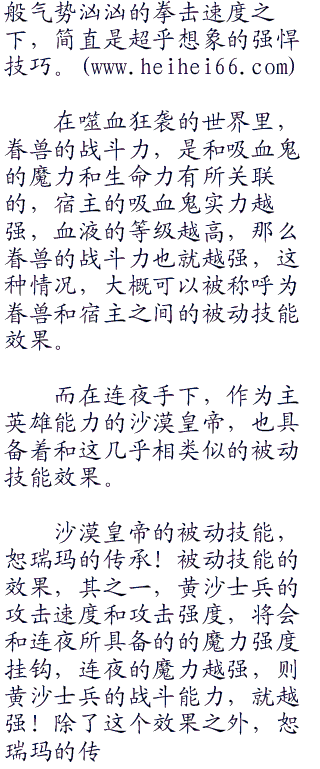 般气势汹汹的拳击速度之
下，简直是超乎想象的强悍
技巧。(www.heihei66.com)
在噬血狂袭的世界里，
眷兽的战斗力，是和吸血鬼
的魔力和生命力有所关联
的，宿主的吸血鬼实力越
强，血液的等级越高，那么
眷兽的战斗力也就越强，这
种情况，大概可以被称呼为
眷兽和宿主之间的被动技能
效果。
而在连夜手下，作为主
英雄能力的沙漠皇帝，也具
备着和这几乎相类似的被动
技能效果。
沙漠皇帝的被动技能，
恕瑞玛的传承！被动技能的
效果，其之一，黄沙士兵的
攻击速度和攻击强度，将会
和连夜所具备的的魔力强度
挂钩，连夜的魔力越强，则
黄沙士兵的战斗能力，就越
强！除了这个效果之外，恕
瑞玛的传